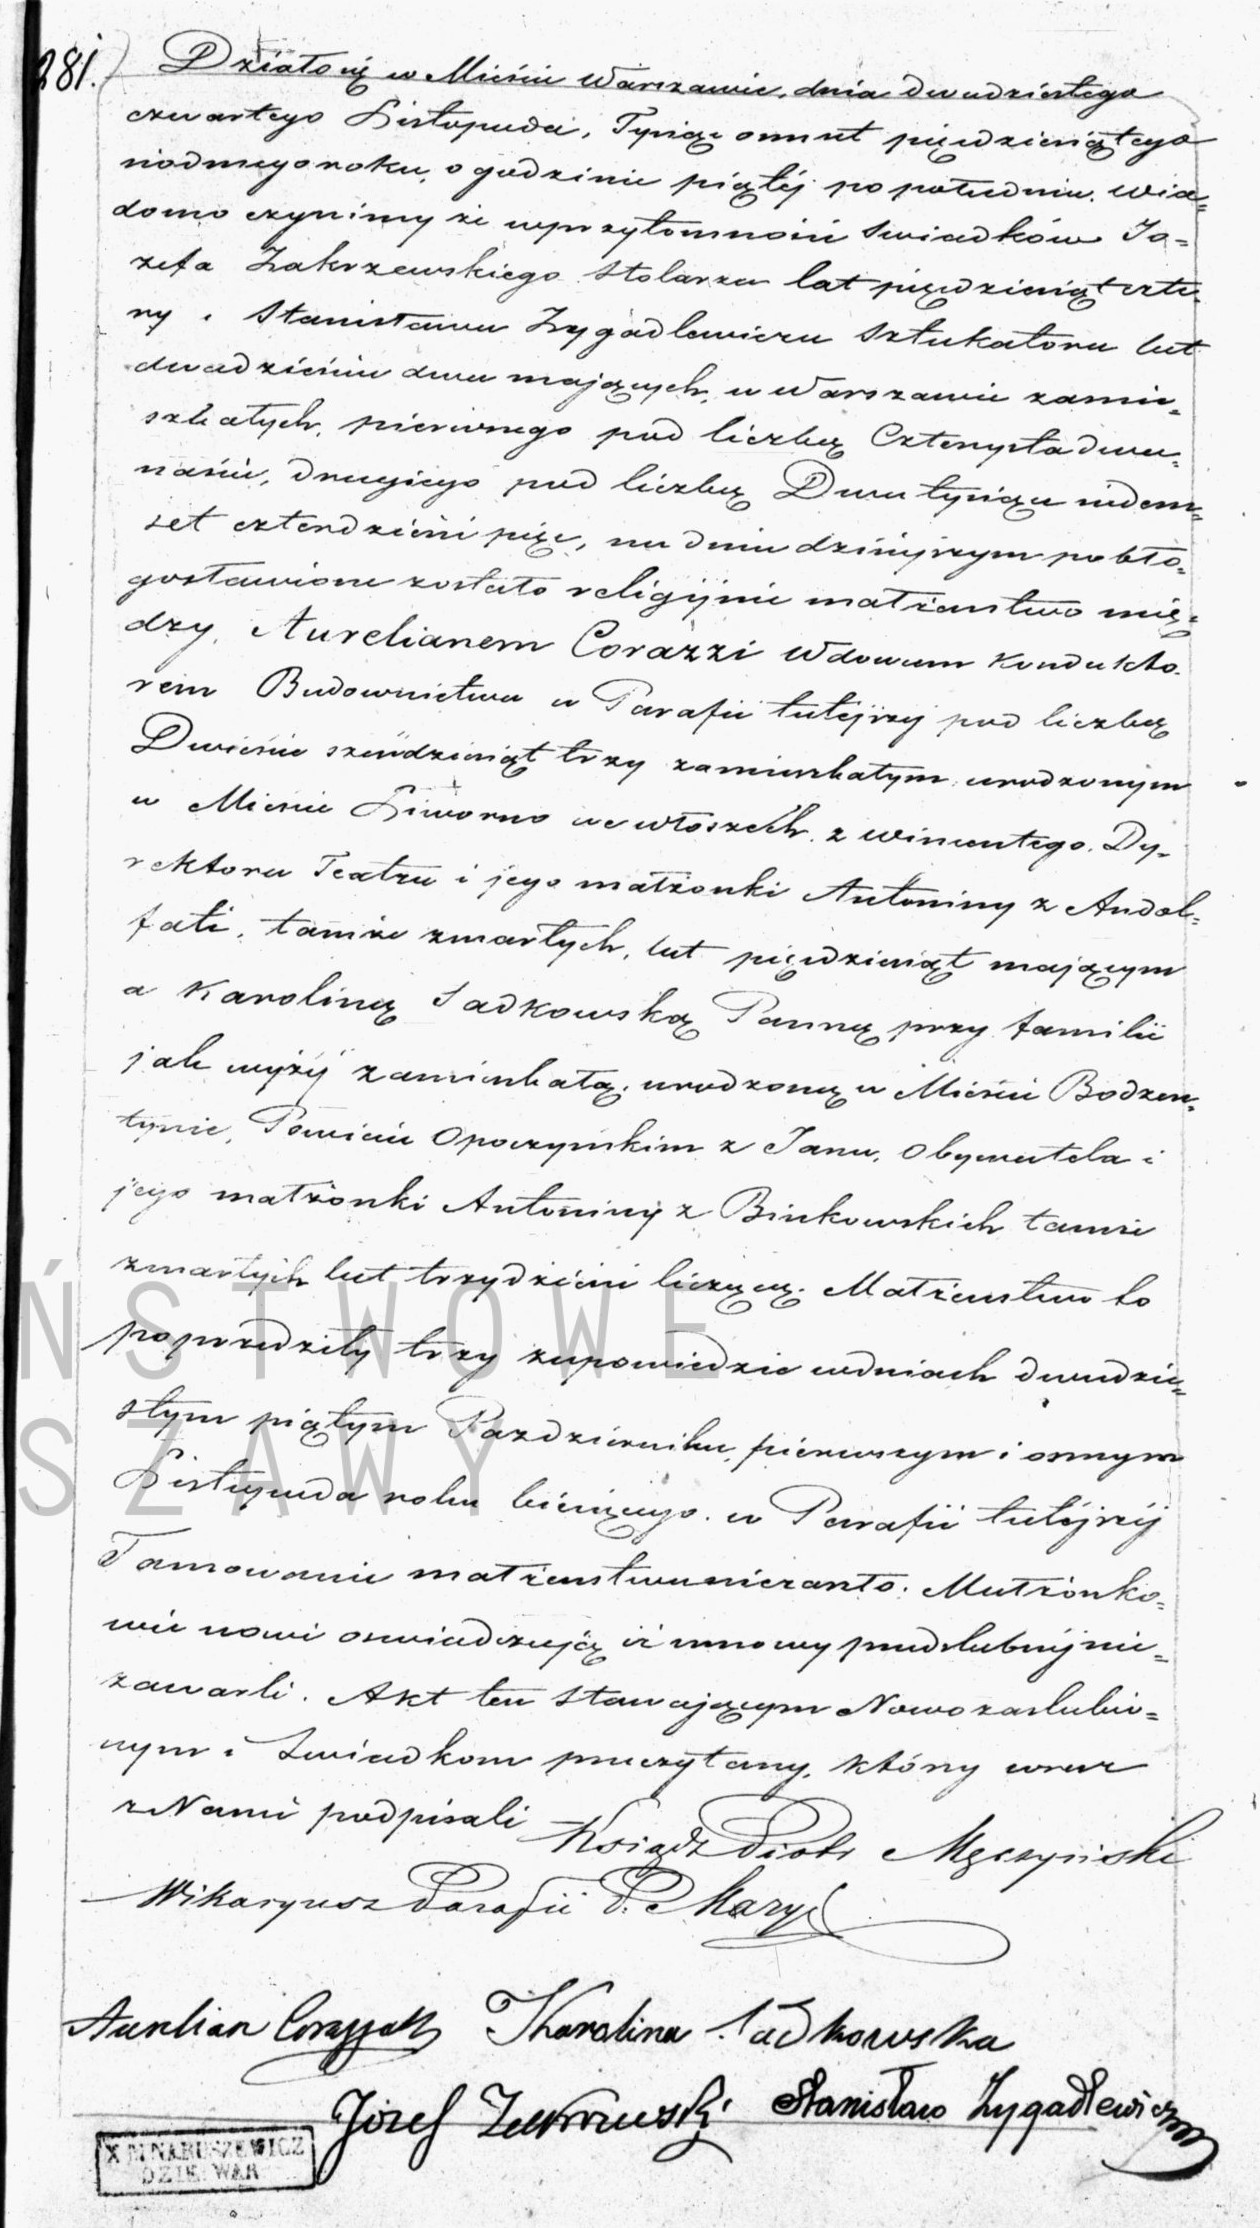 281.) Działo się w Mieście Warszawie, dnia dwudziestego
czwartego Listopada, Tysiąc osmset pięćdziesiątego
siódmego roku, o godzinie piątéj po południu. Wia=
domo czynimy że w przytomności Swiadków Jó=
zefa Zakrzewskiego Stolarza lat pięćdziesiąt czte=
ry i Stanisława Zygadlewicza Sztukatora lat
dwadzieścia dwa mających, w Warszawie zamie=
szkałych, pierwszego pod liczbą Czterysta dwa=
naście, drugiego pod liczbą Dwa tysiące siedem=
set czterdzieści pięć, na dniu dzisiejszym pobło=
gosławione zostało religijnie małżeństwo mię=
dzy, Aurelianem Corazzi Wdowcem Kondukto=
rem Budownictwa w Parafii tutéjszej pod liczbą
Dwieście sześćdziesiąt trzy zamieszkałym, urodzonym
w Mieście Liworno we włoszech, z Wincentego, Dy=
rektora Teatru i jego małżonki Antoniny z Andol=
fati, tamże zmarłych, lat pięćdziesiąt mającym
a Karoliną Sadkowską Panną przy familii
jak wyżéj zamieszkałą, urodzoną w Mieście Bodzen=
tynie, Powiecie Opoczyńskim z Jana, Obywatela i
jego małżonki Antoniny z Binkowskich tamże
zmarłych lat trzydzieści liczącą. Małżeństwo to
poprzedziły trzy zapowiedzie w dniach dwudzie=
stym piątym Pazdziernika, pierwszym i osmym
Listopada roku bieżącego, w Parafii tutéjszéj
Tamowanie małżeństwa nie zaszło. Małżonko=
wie nowi oswiadczają iż umowy przedslubnéj nie=
zawarli. Akt ten Stawającym Nowozaslubio=
nym i Swiadkom przeczytany, który wraz
z Nami podpisali Ksiądz Piotr Męczyński
Wikaryusz Parafii P. Maryi
Aurelian Corazzi Karolina Sadkowska
Józef Zakrzewski Stanisław Zygadlewicz
ŃSTWOWE
SZAWY
X B. NARUSZEWICZ
DZIE. WAR